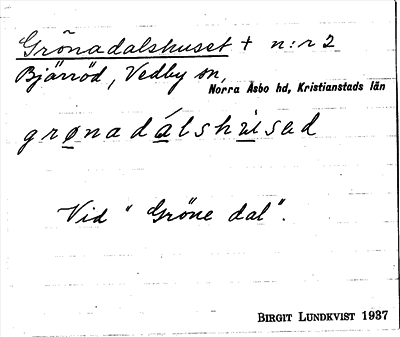 Grönadalshuset + n:r 2
Bjärröd, Vedby sn,
Norra Åsbo hd, Kristianstads län
grønadálshùsad
Vid "Gröne dal".
BIRGIT LUNDKVIST 1937